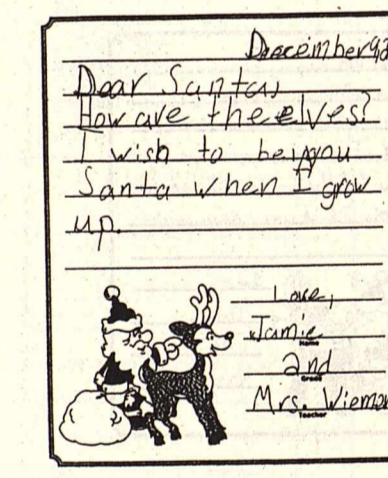 Dear Santa,
How are the elves?
I wish to be you
Santa when I grow
up.
Love,
Jamie
Name
2nd
Grade
Mrs.
Teacher